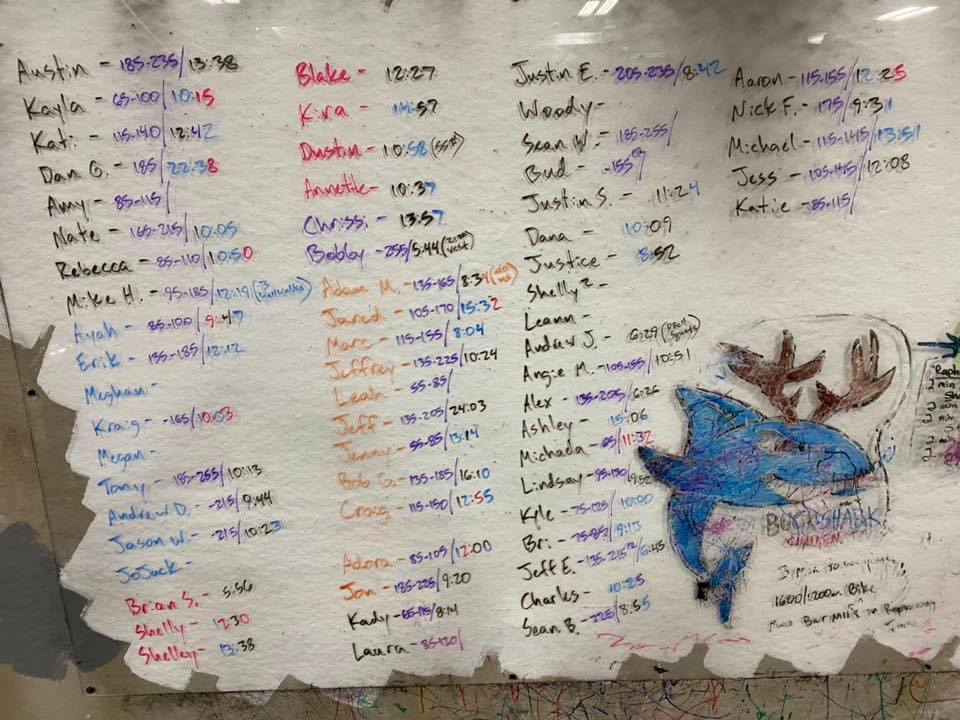 Austin - 185-235/13:38
Kayla - 65-100/10:15
Kati - 115-140/12:42
Dan G. - 185/22:38
Amy - 85-115/
Nate - 165-215/10:05
Rebecca - 85-110/10:50
Mike H. - 95-185/12:19 (3
Ayah - 85-100/9:47
Erik - 155-185/12:12
Meghan -
Kraig - -165/10:03
Megan -
Tony - 185-255/10:13
Andrew D. - -215/9:44
Jason W. - -215/10:23
JoJack -
Brian S. - 5:56
Shelly - 12:30
Shelley - 13:38
Blake - 12:27
Kira - 14:57
Dustin - 10:58 (55#)
Annette - 10:37
Chrissi - 13:57
Bobby - 255/5:44 (vest)
Adam M. - 135-165/8:34
Jared - 105-170/15:32
Marc - 115-155/8:04
Jeffrey - 135-225/10:24
Leah - 55-85/
Jeff - 135-205/24:03
Jenny - 55-85/13:14
Bob G. - 135-185/16:10
Craig - 115-150/12:55
Adora - 85-105/12:00
Jon - 185-225/9:20
Kady - 85-115/8:14
Laura - 85-120/
Justin E. - 205-235/8:42
Woody -
Sean W. - 185-255/
Bud - -155
Justin S. - 11:24
Dana - 10:09
Justice - 8:52
Shelly 2 -
Leann -
Andrew J. - 6:29 (DBell Squats)
Angie M. - 105-155/10:51
Alex - 135-205/6:26
Ashley - 15:06
Michada - 65/11:32
Lindsay - 95-130/9:52
Kyle - 75-125/10:00
Bri - 75-85/9:13
Jeff E. - 135-215/6:45
Charles - 10:25
Sean B. - 225/8:55
Aaron - 115-155/12:25
Nick F. - 175/9:31
Michael - 115-145/13:51
Jess - 105-145/12:08
Katie - 85-115/
BUCKSHARK
1600/1200m Bike
2 min
2 min
2 min